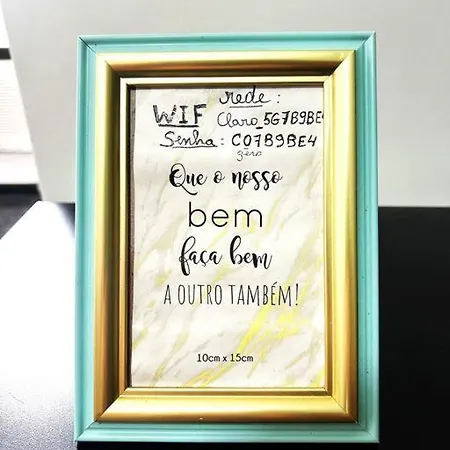 WIF rede:
Claro_5G7B9BE4
Senha: C07B9BE4
zero
Que o nosso
bem
faça bem
A OUTRO TAMBÉM!
10cm x 15cm